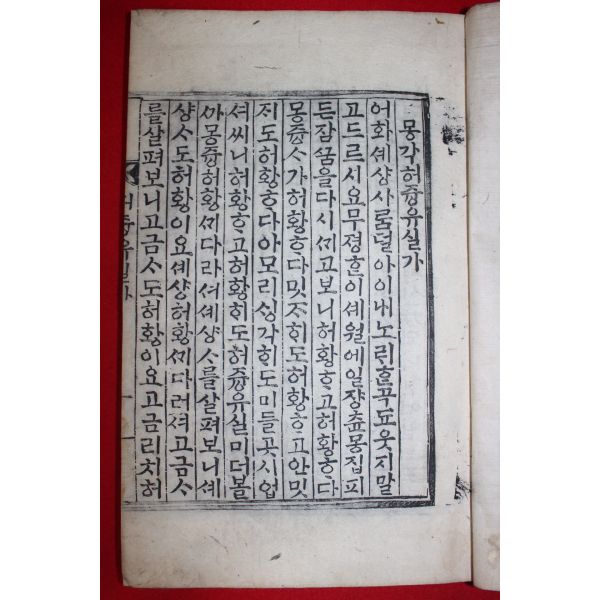 몽각허즁유실가
어화셰샹사ᄅᆞᆷ덜아이ᄂᆡ노ᄅᆡᄒᆞᆫ곡됴웃지말
고드르시요무졍ᄒᆞᆫ이셰월에일쟝츈몽집피
든잠ᄭᅮᆷ을다시ᄭᆡ고보니허황ᄒᆞ고허황ᄒᆞ다
몽즁ᄉᆞ가허황ᄒᆞ다밋ᄌᆞᄒᆡ도허황ᄒᆞ고안밋
ᄌᆡ도허황ᄒᆞ다아모리ᄉᆡᆼ각ᄒᆡ도미들곳시업
셔씨니허황ᄒᆞ고허황ᄒᆡ도허즁유실미더볼
ᄭᅡ몽즁허황ᄭᆡ다라셔셰샹ᄉᆞ를살펴보니셰
샹ᄉᆞ도허황이요셰샹허황ᄭᆡ다려셔고금ᄉᆞ
를살펴보니고금ᄉᆞ도허황이요고금리치허
허즁유실가